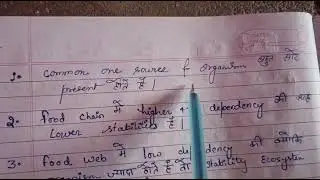 1. common one source f organism
present होते है।
2. food chain में higher dependency की तरह
Lower stability है।
3. food web में low dependency की क्योंकि
ज्यादा होते है तो stability Ecosystem